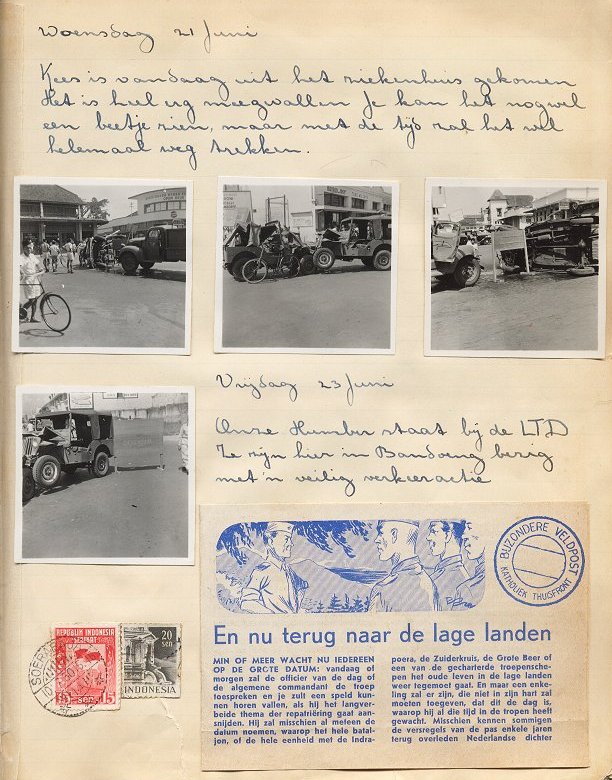 Woensdag 21 Juni
Kees is vandaag uit het ziekenhuis gekomen
Het is heel erg meegevallen Je kan het nog wel
een beetje zien, maar met de tijd zal het wel
helemaal weg trekken.
Vrijdag 23 Juni
Onze Humber staat bij de LTD
Ze zijn hier in Bandoeng bezig
met 'n veilig verkeeractie
BIJZONDERE VELDPOST
KATHOLIEK THUISFRONT
En nu terug naar de lage landen
MIN OF MEER WACHT NU IEDEREEN
OP DE GROTE DATUM: vandaag of
morgen zal de officier van de dag of
de algemene commandant de troep
toespreken en je zult een speld kun-
nen horen vallen, als hij het langver-
beide thema der repatriëring gaat aan-
snijden. Hij zal misschien al meteen de
datum noemen, waarop het hele batal-
jon, of de hele eenheid met de Indra-
poera, de Zuiderkruis, de Grote Beer of
een van de gecharterde troepensche-
pen het oude leven in de lage landen
weer tegemoet gaat. En maar een enke-
ling zal er zijn, die niet in zijn hart zal
moeten toegeven, dat dit de dag is,
waarop hij al die tijd in de tropen heeft
gewacht. Misschien kennen sommigen
de versregels van de pas enkele jaren
terug overleden Nederlandse dichter
REPUBLIK INDONESIA
SERIKAT
15 sen 15
20
sen
INDONESIA